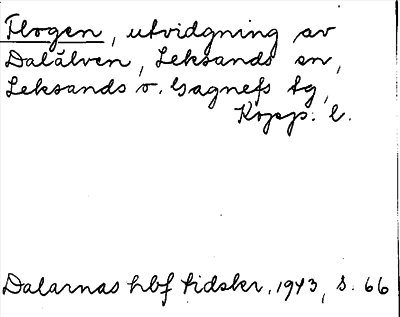 Flogen, utvidgning av
Dalälven, Leksands sn,
Leksands o. Gagnefs tg,
Kopp. l.
Dalarnas hbf tidskr. 1943, s. 66